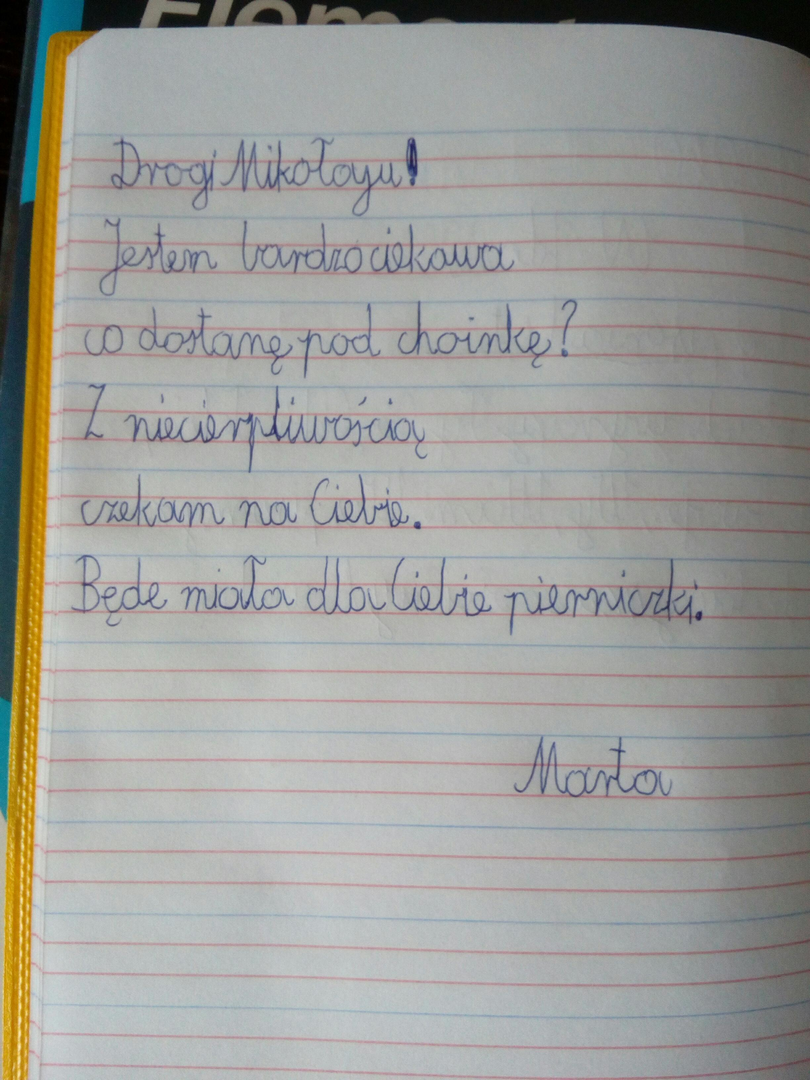 Drogi Mikołaju!
Jestem bardzo ciekawa
co dostanę pod choinkę?
Z niecierpliwością
czekam na Ciebie.
Będe miała dla Ciebie pierniczki.
Marta